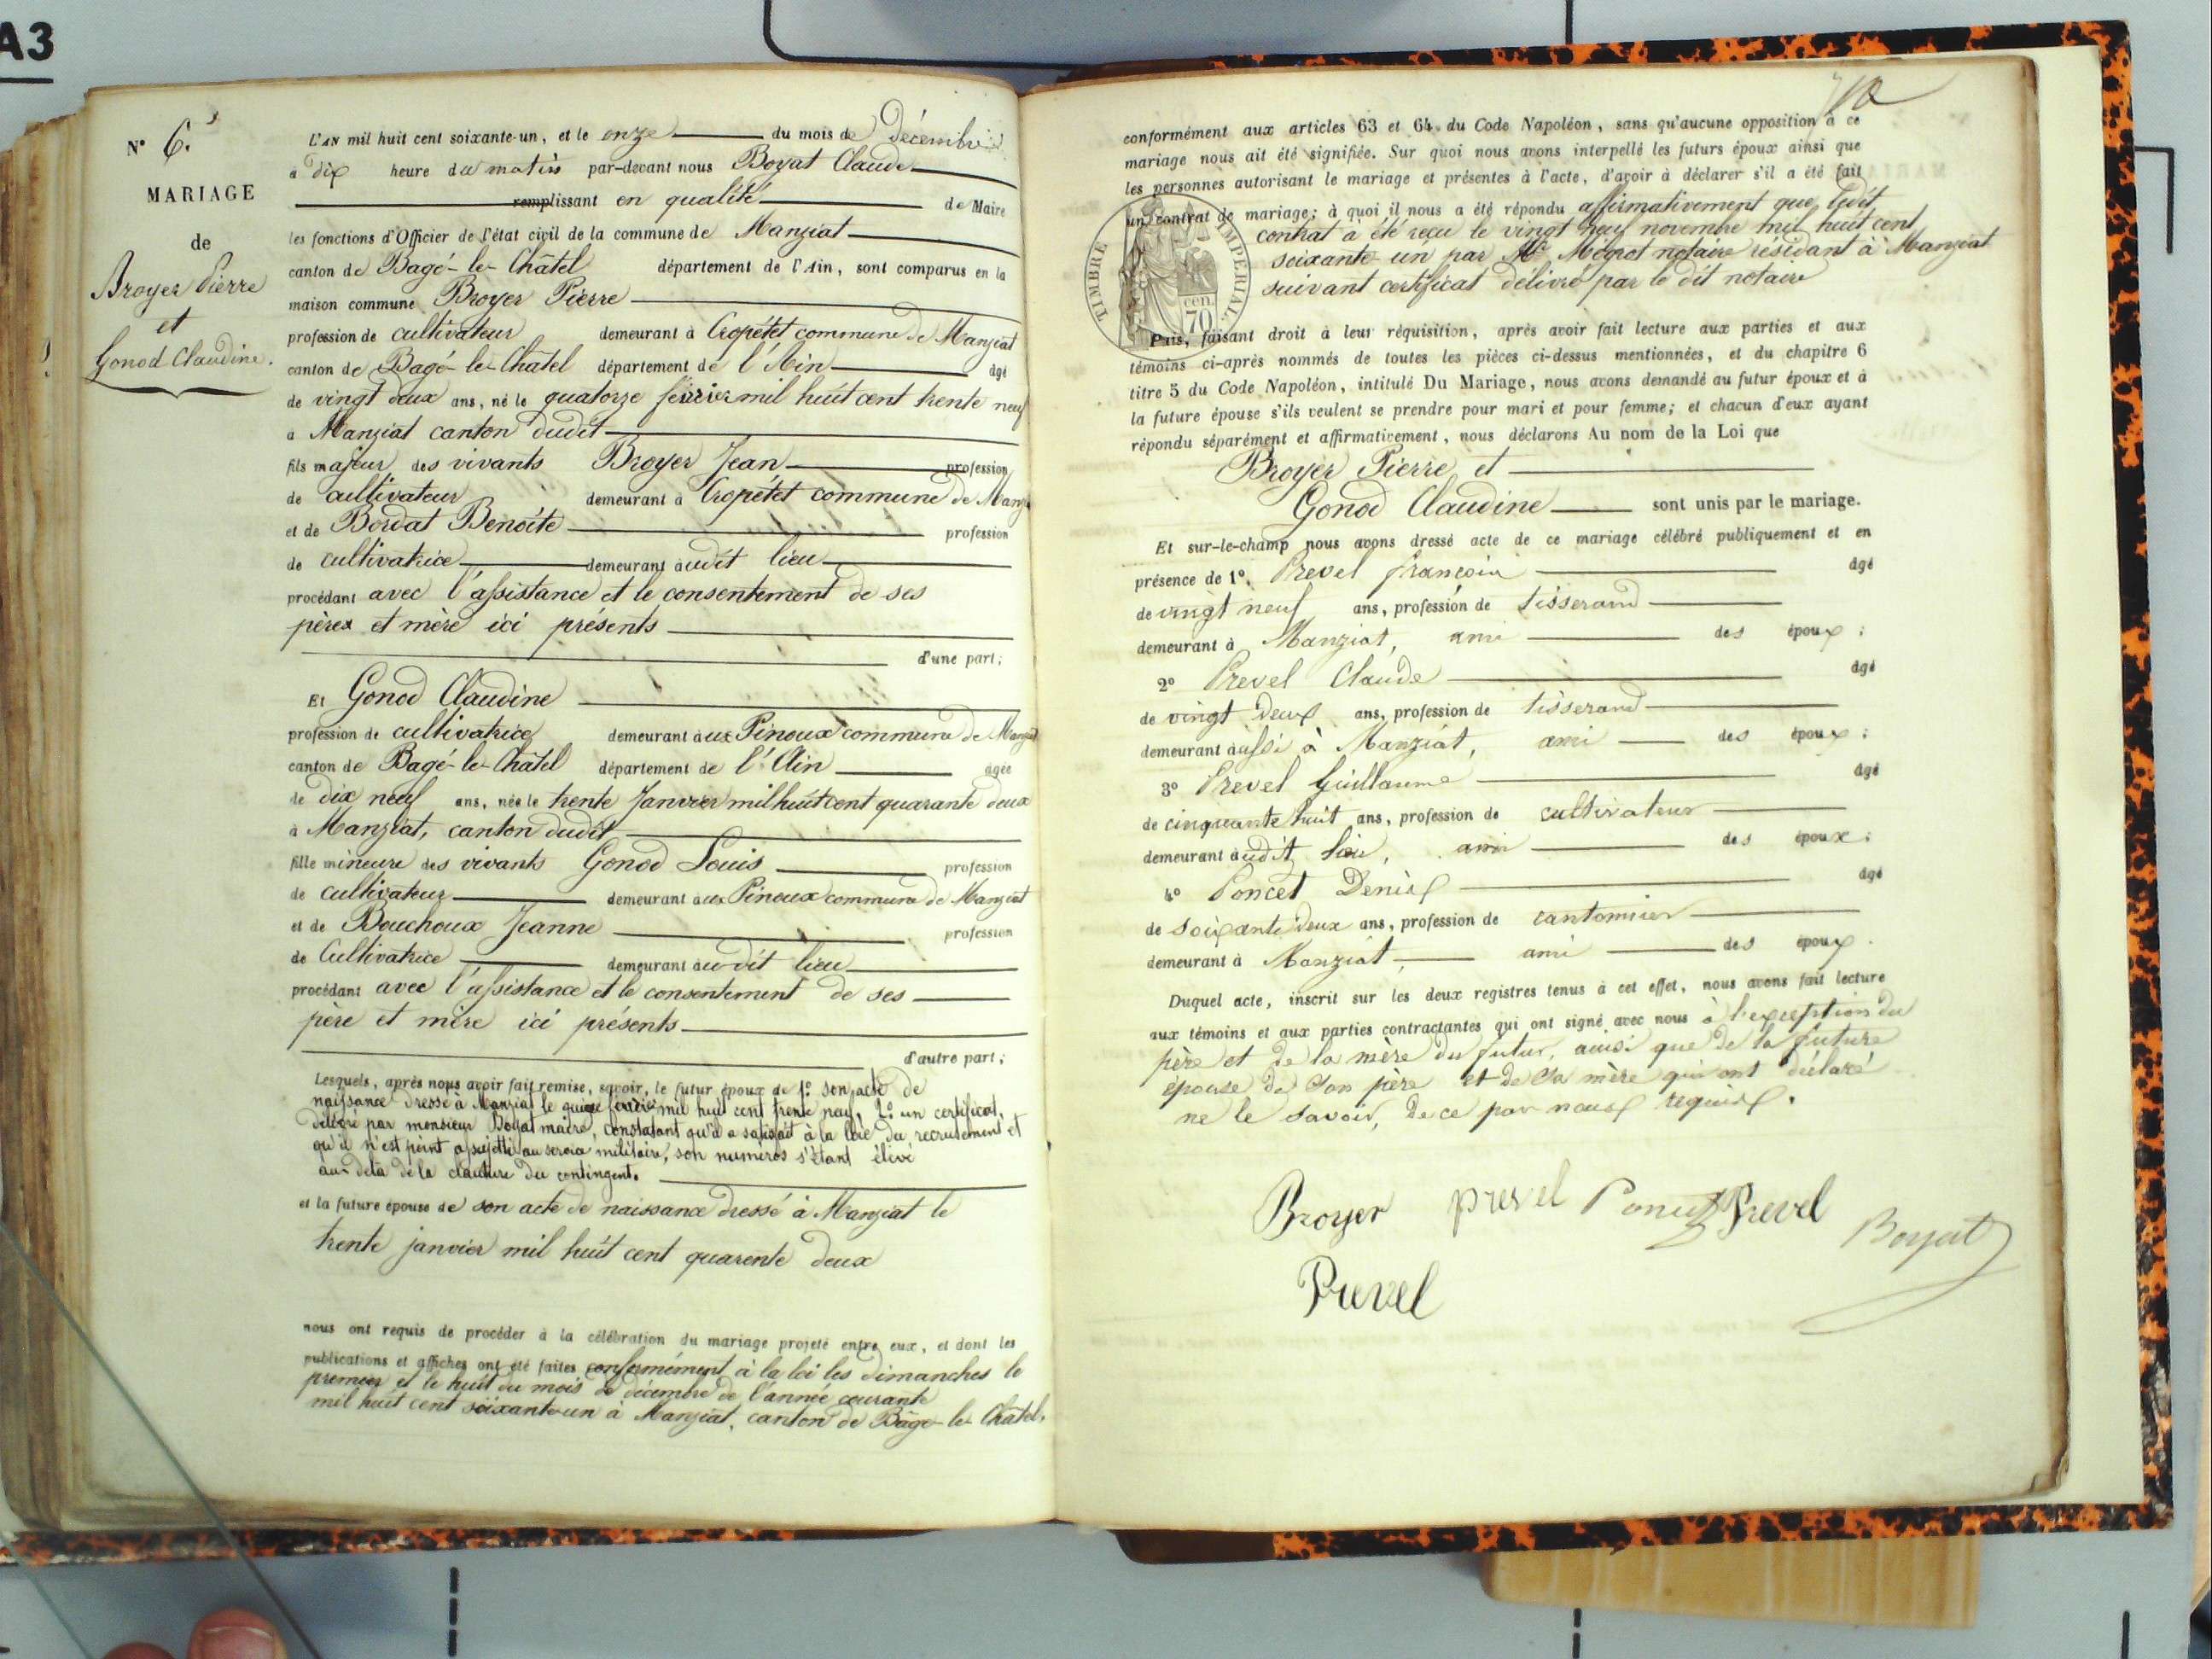 A3
N° 6.
MARIAGE
de
Broyer Pierre
et
Gonod Claudine.
L'AN mil huit cent soixante-un, et le onze du mois de Décembre
à dix heure du matin par-devant nous Boyat Claude
remplissant en qualité de Maire
les fonctions d'Officier de l'état civil de la commune de Manziat
canton de Bagé-le-Châtel département de l'Ain, sont comparus en la
maison commune Broyer Pierre
profession de cultivateur demeurant à Cropétet commune de Manziat
canton de Bagé-le-Châtel département de l'Ain âgé
de vingt deux ans, né le quatorze février mil huit cent trente neuf
à Manziat canton dudit
fils majeur des vivants Broyer Jean profession
de cultivateur demeurant à Cropétet commune de Manz
et de Bordat Benoîte profession
de cultivatrice demeurant audit lieu
procédant avec l'assistance et le consentement de ses
pères et mère ici présents
d'une part;
Et Gonod Claudine
profession de cultivatrice demeurant aux Pinoux commune de Manziat
canton de Bagé-le-Châtel département de l'Ain âgée
de dix neuf ans, née le trente Janvier mil huit cent quarante deux
à Manziat, canton dudit
fille mineure des vivants Gonod Louis profession
de cultivateur demeurant aux Pinoux commune de Manziat
et de Bouchoux Jeanne profession
de Cultivatrice demeurant au dit lieu
procédant avec l'assistance et le consentement de ses
père et mère ici présents
d'autre part;
Lesquels, après nous avoir fait remise, savoir, le futur époux de 1° son acte de
naissance dressé à Manziat le quinze février mil huit cent trente neuf, 2° un certificat,
délivré par monsieur Boyat maire, constatant qu'il a satisfait à la loie du recrutement et
qu'il n'est point assujetti au service militaire, son numéros s'étant élevé
au-delà de la clauture du contingent.
et la future épouse de son acte de naissance dressé à Manziat le
trente janvier mil huit cent quarente deux
nous ont requis de procéder à la célébration du mariage projeté entre eux, et dont les
publications et affiches ont été faites conformément à la loi les dimanches le
premier et le huit du mois de décembre de l'année courante
mil huit cent soixante un à Manziat, canton de Bâgé-le-Châtel.
conformément aux articles 63 et 64 du Code Napoléon, sans qu'aucune opposition à ce
mariage nous ait été signifiée. Sur quoi nous avons interpellé les futurs époux ainsi que
les personnes autorisant le mariage et présentes à l'acte, d'avoir à déclarer s'il a été fait
un contrat de mariage; à quoi il nous a été répondu affirmativement que ledit
contrat a été reçu le vingt neuf novembre mil huit cent
soixante un par Me Mégret notaire résidant à Manziat
suivant certificat délivré par le dit notaire
TIMBRE IMPERIAL
cen.
70
Puis, faisant droit à leur réquisition, après avoir fait lecture aux parties et aux
témoins ci-après nommés de toutes les pièces ci-dessus mentionnées, et du chapitre 6
titre 5 du Code Napoléon, intitulé Du Mariage, nous avons demandé au futur époux et à
la future épouse s'ils veulent se prendre pour mari et pour femme; et chacun d'eux ayant
répondu séparément et affirmativement, nous déclarons Au nom de la Loi que
Broyer Pierre et
Gonod Claudine sont unis par le mariage.
Et sur-le-champ nous avons dressé acte de ce mariage célébré publiquement et en
présence de 1°. Prevel françois âgé
de vingt neuf ans, profession de tisserand
demeurant à Manziat, ami des époux;
2° Prevel Claude âgé
de vingt deux ans, profession de tisserand
demeurant aussi à Manziat, ami des époux;
3° Prevel Guillaume âgé
de cinquante huit ans, profession de cultivateur
demeurant audit lieu, ami des époux;
4° Poncet Denis âgé
de soixante deux ans, profession de cantonnier
demeurant à Manziat, ami des époux.
Duquel acte, inscrit sur les deux registres tenus à cet effet, nous avons fait lecture
aux témoins et aux parties contractantes qui ont signé avec nous à l'exception du
père et de la mère du futur, ainsi que de la future
épouse de son père et de sa mère qui ont déclaré
ne le savoir, de ce par nous requis.
Broyer prevel Poncet Prevel
Boyat
Prevel